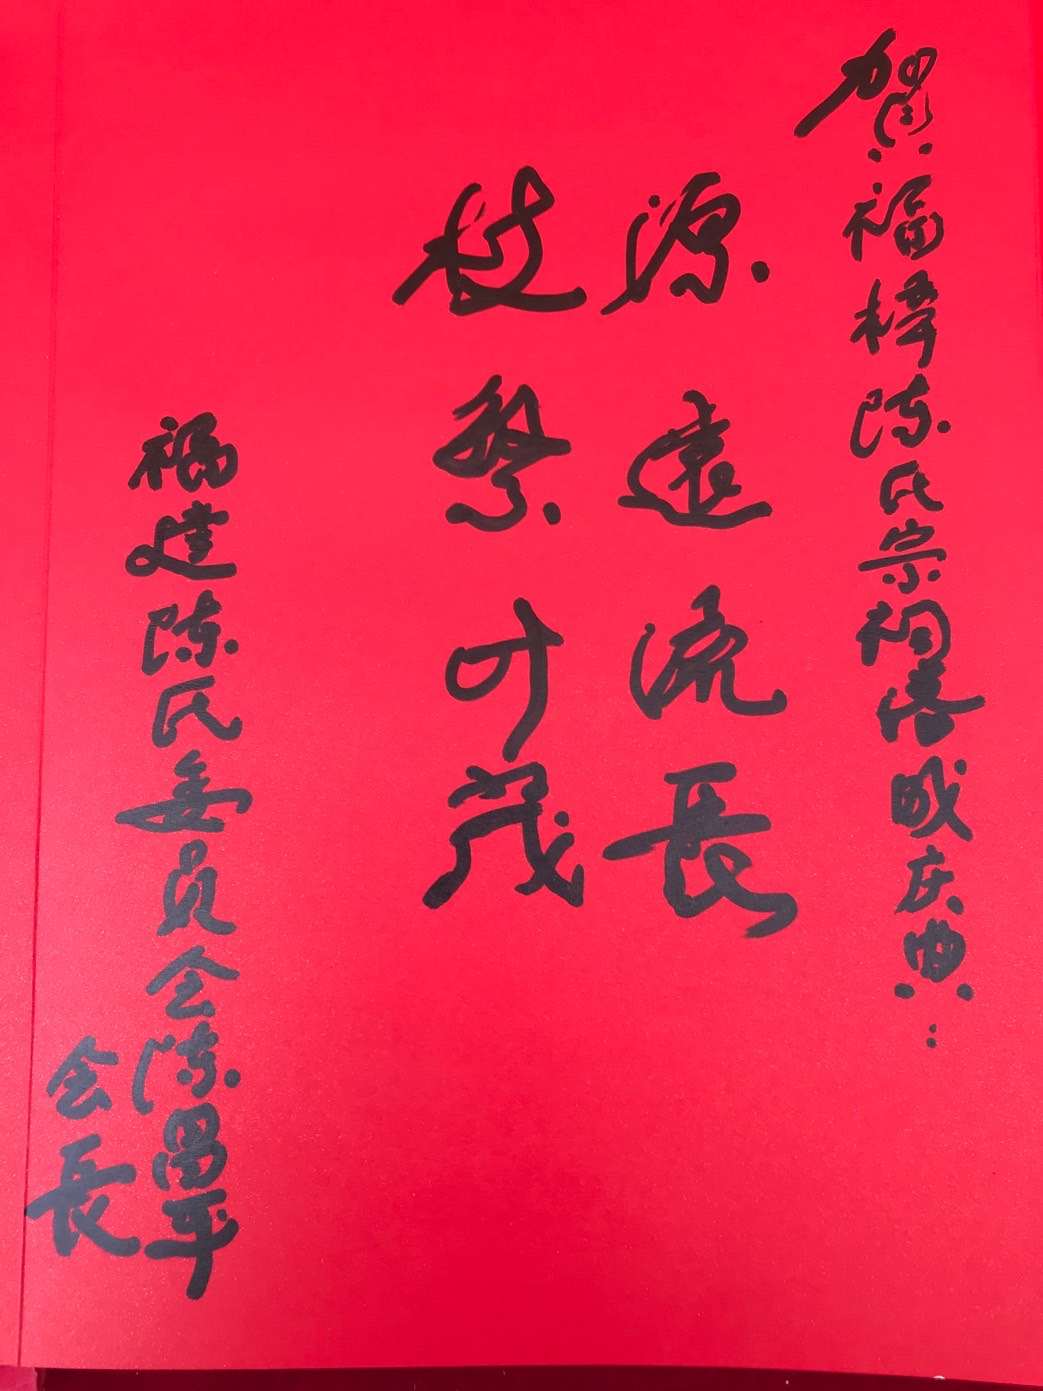 贺福樟陈氏宗祠落成庆典：
源遠流長
枝繁叶茂
福建陈氏委员会陈昌平
会長